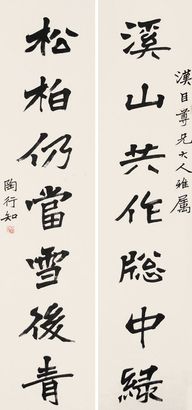 漢目尊兄大人雅屬
溪山共作牕中綠
松柏仍當雪後青
陶行知